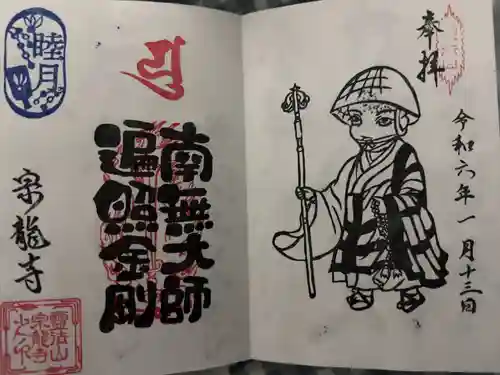 奉拝
令和六年一月十三日
睦月
南無大師
遍照金剛
宗龍寺